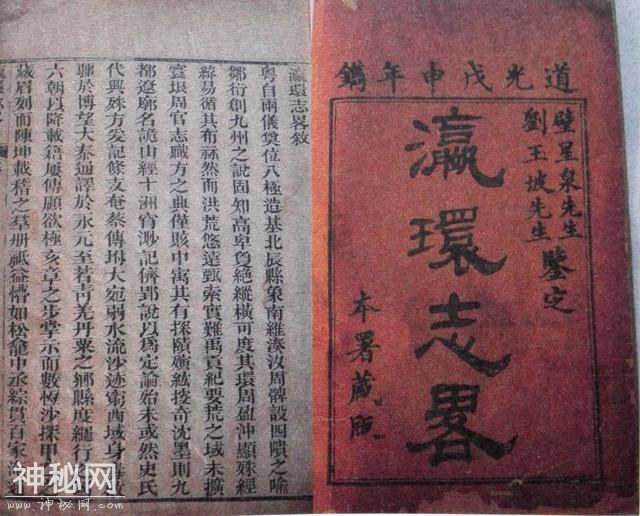 道光戊申年鐫
壁星泉先生
劉玉坡先生
鑒定
瀛環志畧
本署藏版
瀛環志畧敘
粵自兩儀奠位八極造基北辰縣象南維湊汝周髀設四隤之喻
鄒衍創九州之說固知高卑負絕縱橫可度其環周盈沖顯殊經
緯易循其布
然而洪荒悠遠甄索實難禹貢紀要荒之域未擴
寰垠周官志職方之典僅賅中寓其有探賾
紘捘奇沈墨則九
都遼廓名詭山經十洲
渺記儕郢說以爲定論始未或然史氏
代興殊方爰記條支奄蔡傳坿大宛弱水流沙迹窮西域身毒
驛於博望大秦通譯於永元至若靑羌丹粟之鄉縣度繩行
六朝以降載籍屢傳顧欲極亥章之步掌示而數恆沙探甲
藏眉列而陳坤載稽之羣册祗益懵如松龕中丞綜貫百家
神秘网
www.神秘网.com